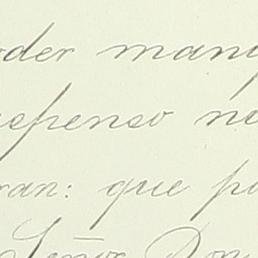 der man
spenso ne
ran: que po
Señor Don